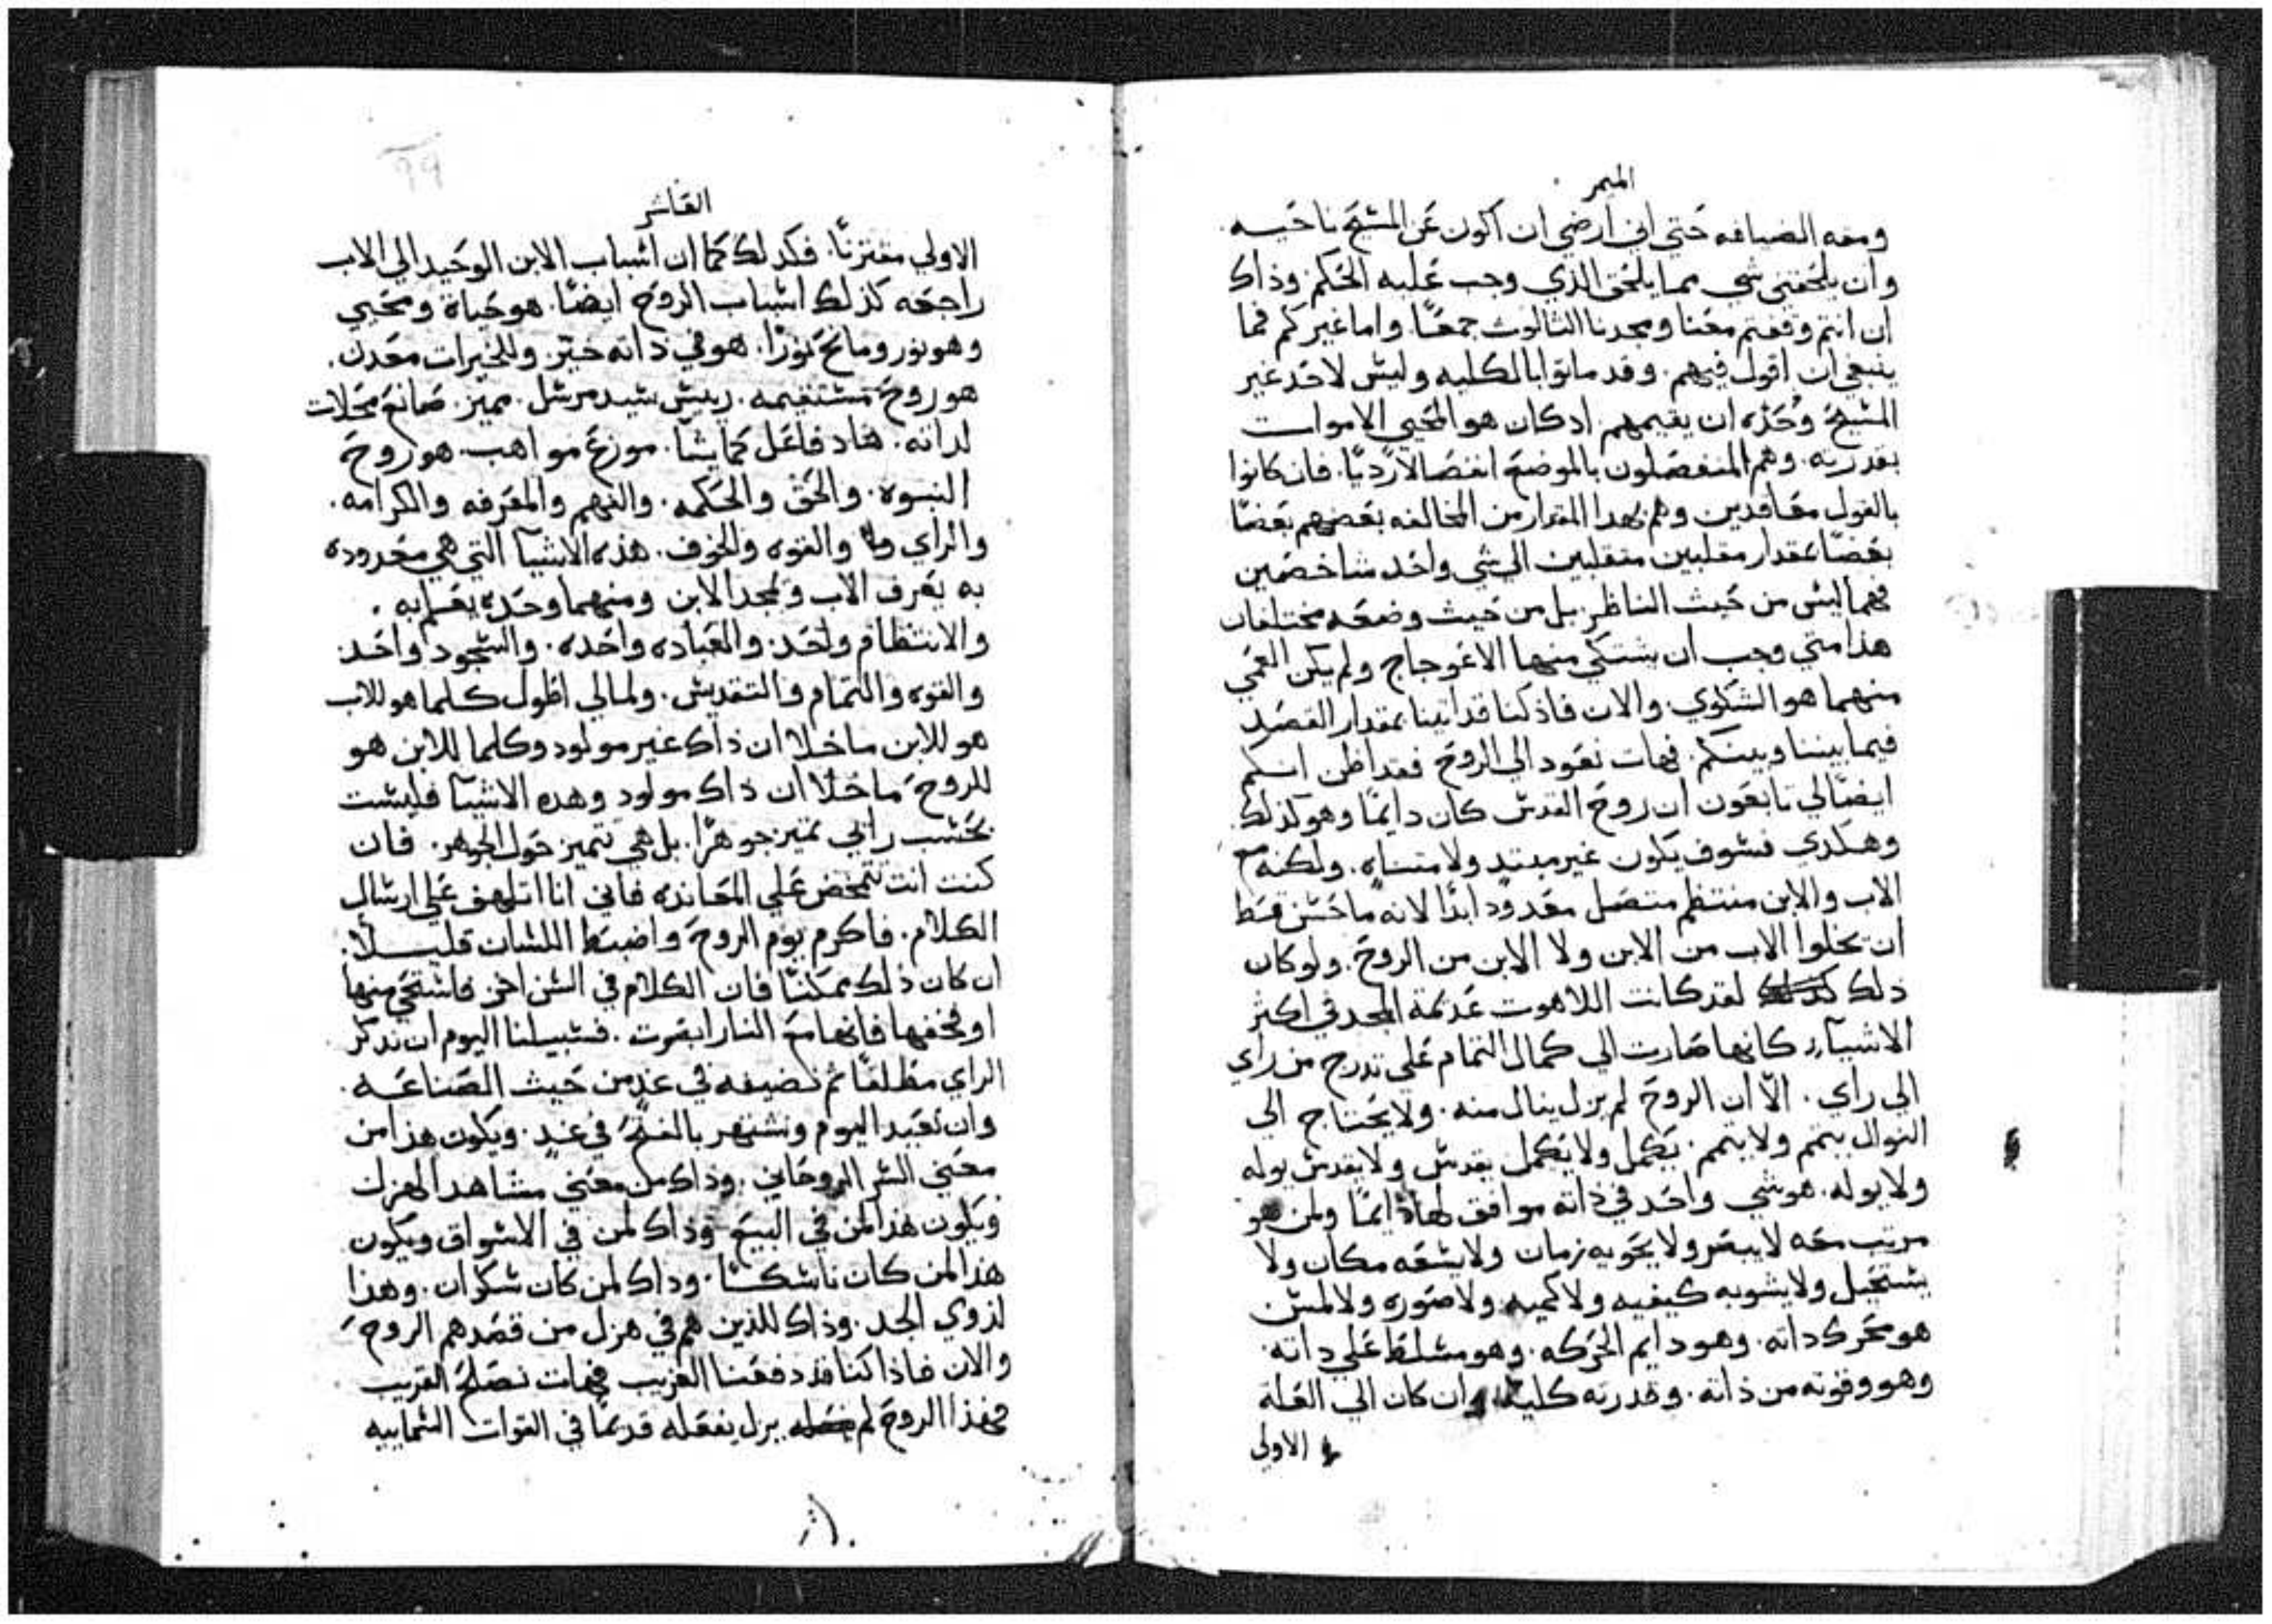 الميمر
ومعه الضيافه حتي اني ارضي ان اكون عن المسيح ناحيه
وان يلحقني شي مما يلحق الذي وجب عليه الحكم وذاك
ان انتم وقفتم معنا ومجدنا الثالوث جمعًا. واما غيركم فما
ينبغي ان اقول فيهم. وقد ماتوا بالكليه وليس لاحد غير
المسيح وحده ان يقيمهم. اد كان هو المحيي الاموات
بقدرته. وهم المنفصلون بالموضع انفصالا رديًا. فان كانوا
بالقول معاقدين وهم بهدا المقدار من المخالفه بعضهم بعضًا
بعضًا بمقدار مقلبين متقلبين الي شي واحد شاخصين
فهما ليس من حيث الناظر بل من حيث وضعه مختلفان
هذا متي وجب ان يشتكي منهما الاعوجاج ولم يكن العمي
منهما هو الشكوي. والان فاذ كنا قد اتينا بمقدار القصد
فيما بيننا وبينكم. فهات نعود الي الروح فقد اظن انكم
ايضًا لي تابعون ان روح القدس كان دايمًا وهو كذلك
وهكدي فسوف يكون غير مبتد ولا متناه. ولكنه مع
الاب والابن منتظم متصل معدود ابدًا لانه ما حسن قط
ان يخلوا الاب من الابن ولا الابن من الروح. ولو كان
ذلك لقد كانت اللاهوت عديمة المجد في اكثر
الاشيآء كانها صارت الي كمال التمام علي تدرج من راي
الي راي. الّا ان الروح لم يزل ينال منه. ولا يحتاج الي
النوال يتمم ولا يتمم. يكمل ولا يكمل يقدس ولا يقدس يوله
ولا يوله. هو شي واحد في ذاته موافق لها دايمًا ولمن هو
مرتب معه لا يبصر ولا يحويه زمان ولا يسعه مكان ولا
يستحيل ولا يشوبه كيفيه ولا كميه ولا صوره ولا لمس
هو محرك داته. وهو دايم الحركه. وهو مسلط علي داته.
وهو وقوته من ذاته. وقدرته كليه وان كان الي العله
الاولي
99
العاشر
الاولي مقترنًا. فكدلك كما ان اسباب الابن الوحيد الي الاب
راجعه كذلك اسباب الروح ايضًا. هو حياة ومحيي
وهو نور ومانح نورًا. هو في داته خيّر وللخيرات معدن.
هو روح مستقيمه. ريس سيد مرسل. مميز. صانع محلات
لداته. هاد فاعل كما يشا. موزع مواهب. هو روح
النبوه. والحق والحكمه. والفهم والمعرفه والكرامه.
والراي والقوه والخوف. هذه الاشيآ التي هي معدوده
به يعرف الاب ويمجد الابن ومنهما وحده يعلم به.
والانتظام واحد. والعباده واحده. والسجود واحد
والقوه والتمام والتقديس. ولما لي اطول كلما هو للاب
هو للابن ما خلا ان ذاك غير مولود وكلما للابن هو
للروح ما خلا ان ذاك مولود وهده الاشيآ فليست
بحسب رايي تميز جوهرًا. بل هي تتميز حول الجوهر. فان
كنت انت تتمخض علي المعانده فاني انا اتلهف علي ارسال
الكلام. فاكرم يوم الروح واضبط اللسان قليلًا.
ان كان ذلك ممكنًا فان الكلام في السن اخر فاستحي منها
او فخفها فانها مع النار ابصرت. فسبيلنا اليوم ان ندكر
الراي مطلقًا ثم نضيفه في غد من حيث الصناعه.
وان نعيد اليوم ونشتهر بالفتح في غد. ويكون هذا من
معني السر الروحاني. وذاك من معني مشاهد الهزل
ويكون هذا لمن في البيع وذاك لمن في الاسواق ويكون
هذا لمن كان ناسكًا. وداك لمن كان سكران. وهذا
لذوي الجد. وذاك للذين هم في هزل من قصدهم الروح
والان فاذا كنا قد دفعنا الغريب فهات نصلح القريب
فهذا الروح لم يزل بفعله قديمًا في القوات السماييه